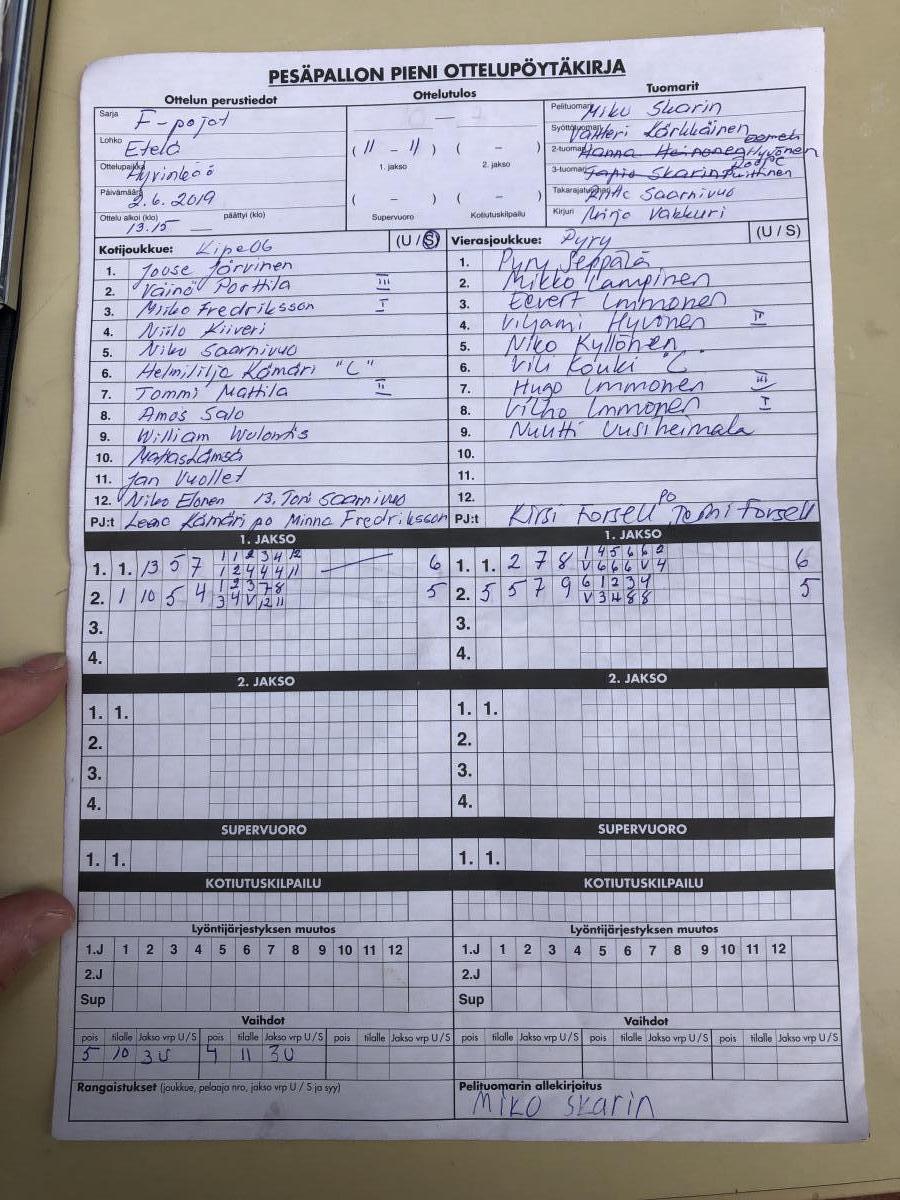 PESÄPALLON PIENI OTTELUPÖYTÄKIRJA
Ottelun perustiedot Ottelutulos Tuomarit
Sarja F-pojat
Lohko Etelä
Ottelupaikka Hyvinkää
Päivämäärä 2.6.2019
Ottelu alkoi (klo) 13.15 päättyi (klo)
–
( 11 - 11 ) ( – )
1. jakso 2. jakso
( – ) ( – )
Supervuoro Kotiutuskilpailu
Pelituomari Miko Skarin
Syöttötuomari Valtteri Kärkkäinen
2-tuomari Hanna Heinonen Eemeli Hyvönen
3-tuomari Tapio Skarin Puittinen
Takarajatuomari Riitta Saarnivuo
Kirjuri Mirja Vakkuri
Kotijoukkue: Kipe06 (U / S)
1. Jouse Järvinen
2. Väinö Porttila III
3. Miiko Fredriksson I
4. Niilo Kiiveri
5. Niko Saarnivuo
6. Helmililja Kämäri "C"
7. Tommi Mattila II
8. Amos Salo
9. William Wulontis
10. Matias Lämsä
11. Jan Vuollet
12. Niko Elonen 13. Toni Saarnivuo
PJ:t Leeno Kämäri po Minna Fredriksson
Vierasjoukkue: Pyry (U / S)
1. Pyry Seppälä
2. Mikko Lampinen
3. Eevert Immonen
4. Viljami Hyvönen II
5. Niko Kyllönen
6. Vili Kouki "C"
7. Hugo Immonen III
8. Vilho Immonen I
9. Nuutti Uusiheimala
10.
11.
12.
PJ:t Kirsi Forsell po Tomi Forsell
1. JAKSO
1. 1. 13 5 7 1 1 2 3 4 12 6
1 2 4 4 4 11
2. 1 10 5 4 1 2 3 7 8 5
3 4 V 12 11
3.
4.
1. JAKSO
1. 1. 2 7 8 1 4 5 6 6 2 6
V 6 6 6 V 4
2. 5 5 7 9 6 1 2 3 4 5
V 3 4 8 8
3.
4.
2. JAKSO
1. 1.
2.
3.
4.
2. JAKSO
1. 1.
2.
3.
4.
SUPERVUORO
1. 1.
SUPERVUORO
1. 1.
KOTIUTUSKILPAILU
KOTIUTUSKILPAILU
Lyöntijärjestyksen muutos
1.J 1 2 3 4 5 6 7 8 9 10 11 12
2.J
Sup
Lyöntijärjestyksen muutos
1.J 1 2 3 4 5 6 7 8 9 10 11 12
2.J
Sup
Vaihdot
pois tilalle Jakso vrp U / S pois tilalle Jakso vrp U / S pois tilalle Jakso vrp U / S
5 10 3U 4 11 3U
Vaihdot
pois tilalle Jakso vrp U / S pois tilalle Jakso vrp U / S pois tilalle Jakso vrp U / S
Rangaistukset (joukkue, pelaaja nro, jakso vrp U / S ja syy)
Pelituomarin allekirjoitus
Miko Skarin